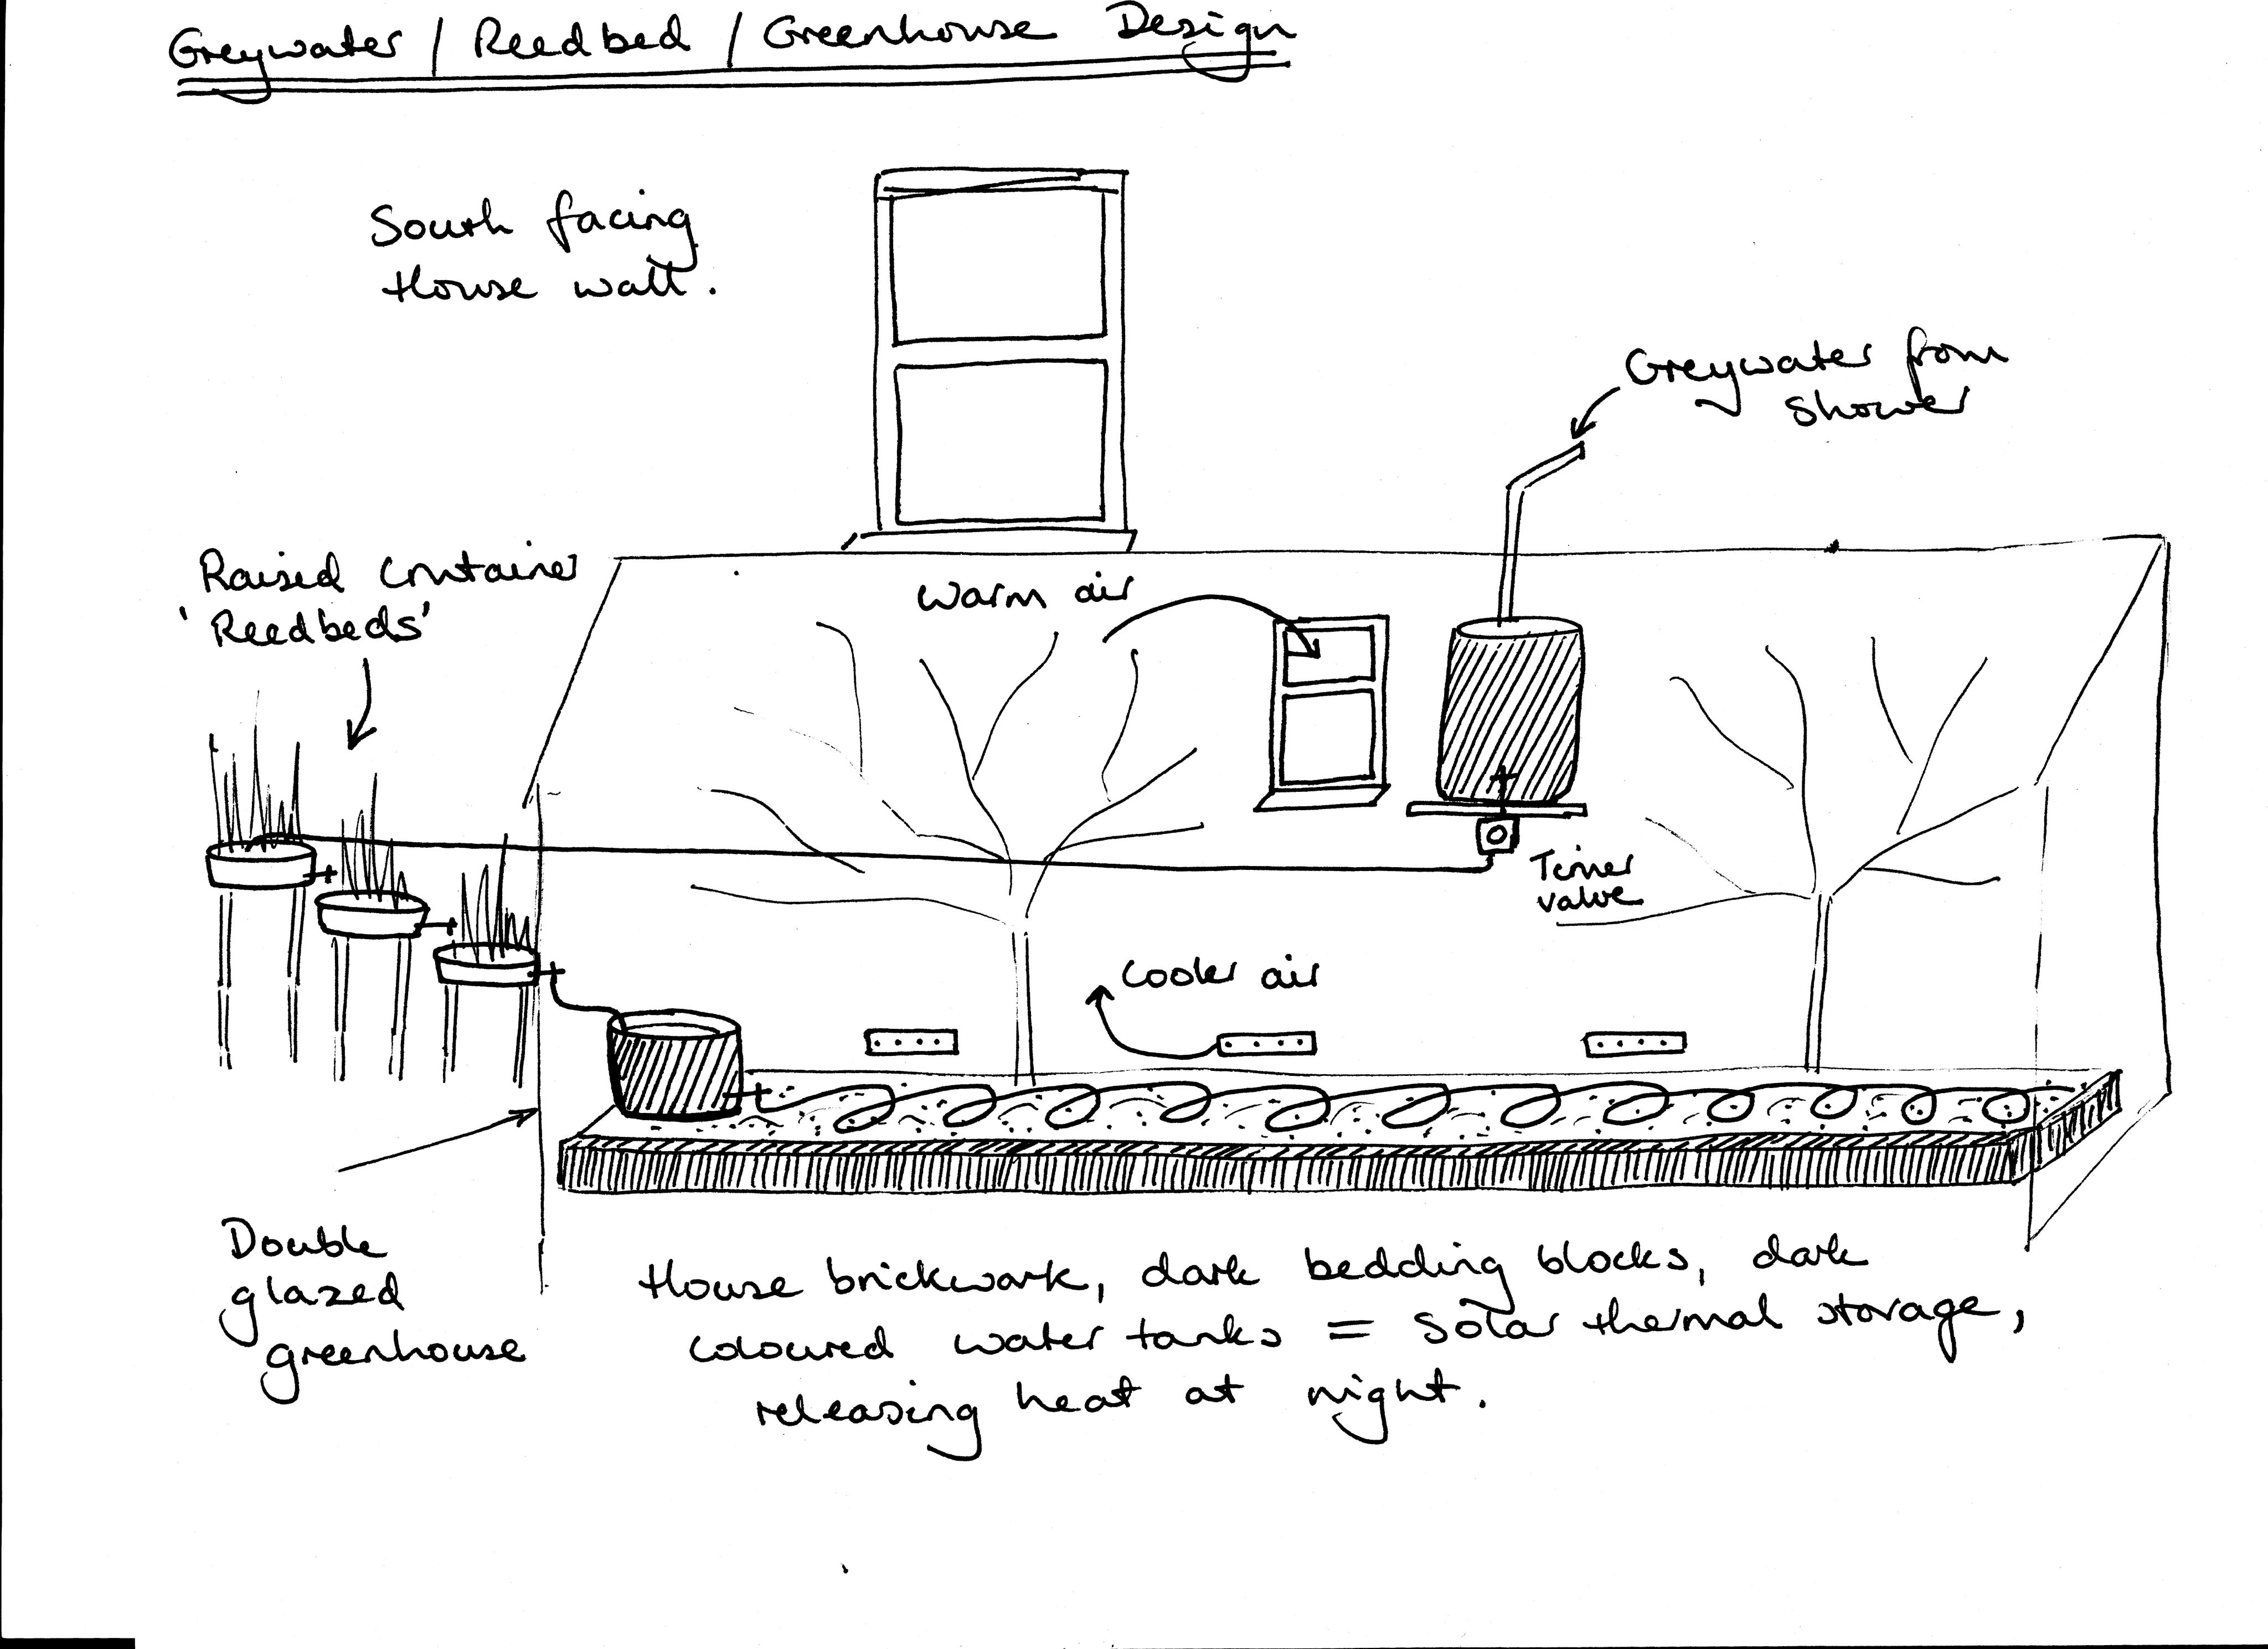 Greywater / Reedbed / Greenhouse Design
South facing
House wall.
Greywater from
shower
Raised container
'Reedbeds'
warm air
Timer
valve
cooler air
Double
glazed
greenhouse
House brickwork, dark bedding blocks, dark
coloured water tanks = solar thermal storage,
releasing heat at night.